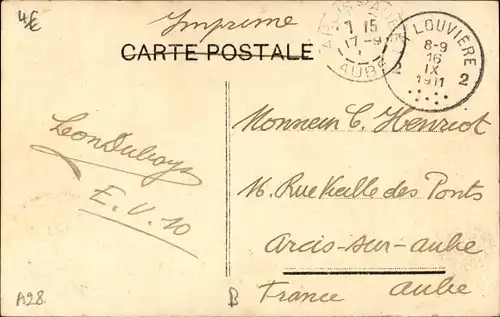 4€
Imprimé
CARTE POSTALE
7 15
17-9
AUBE
LOUVIÈRE
8-9
16
IX
1911
2 2
Leon Duboys
E. V. 10
Monsieur C. Henriot
16. Rue Vieille des Ponts
Arcis-sur-aube
France aube
A28
B